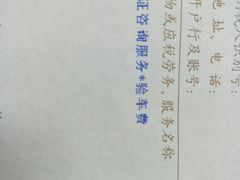 税人识别号:
地址、电话:
开户行及账号:
物或应税劳务、服务名称
证咨询服务*验车费